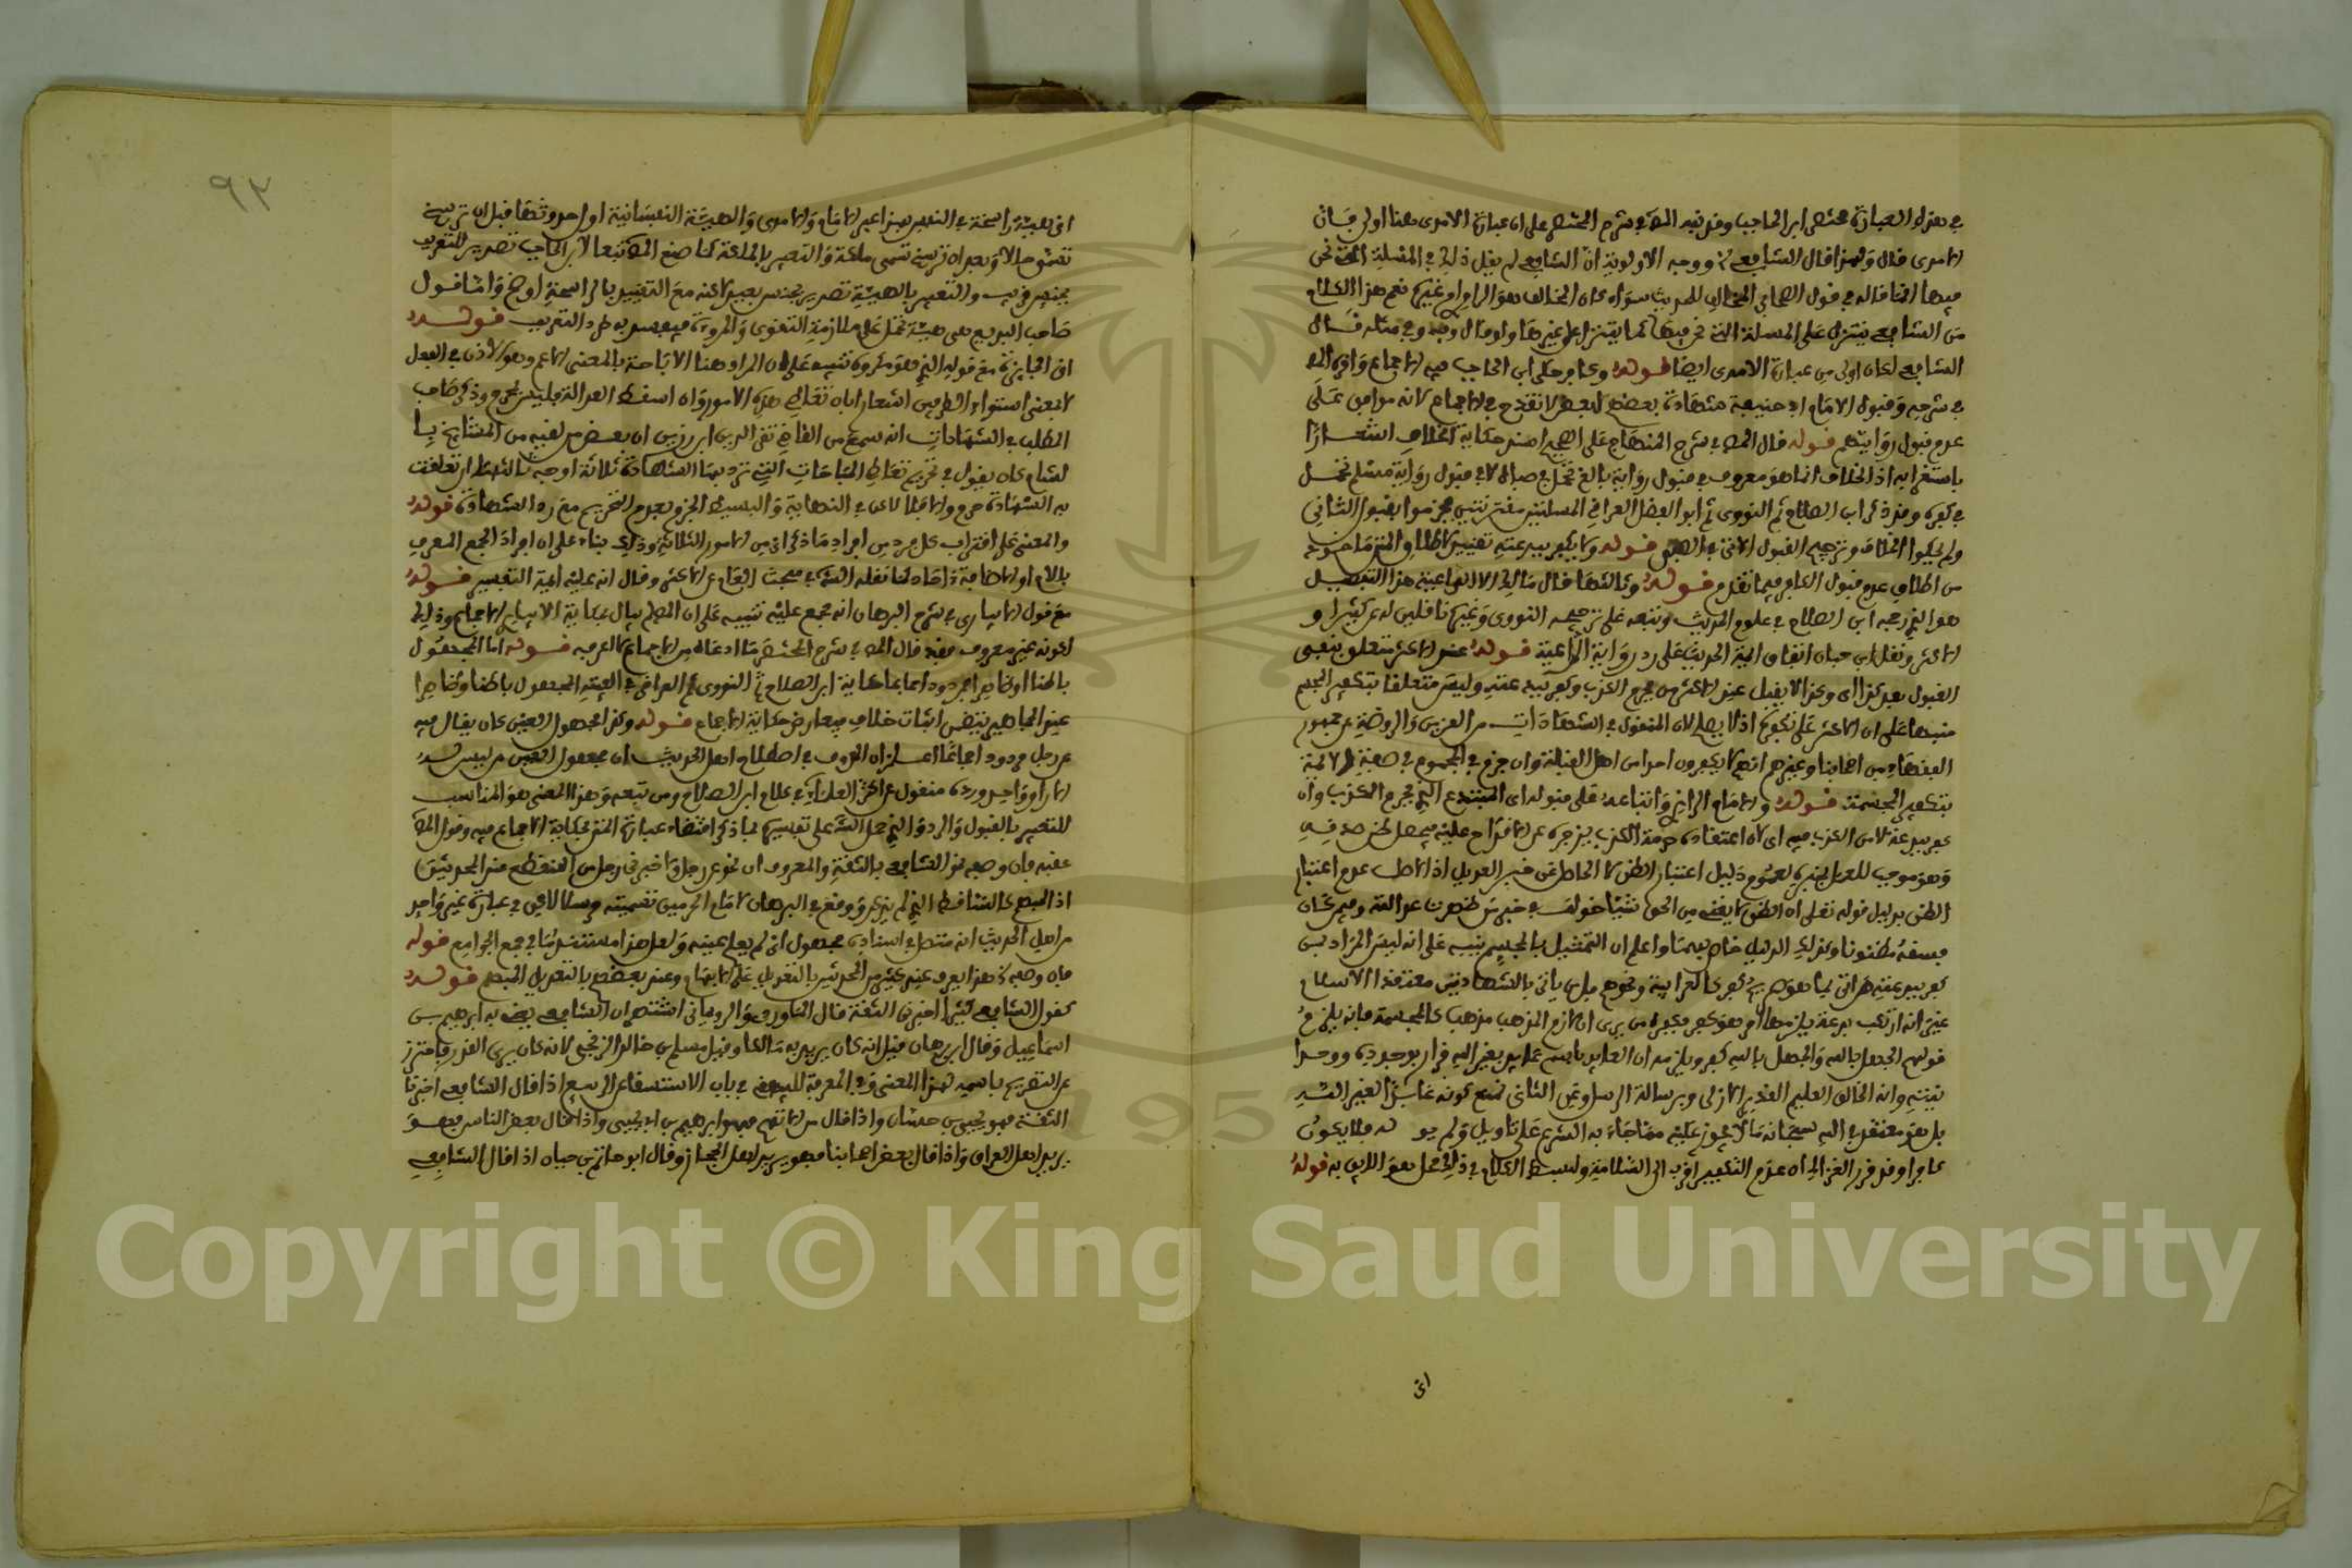 في هذه العبارة مختصر ابن الحاجب وقد نبه المص في شرح المختصر على ان عبارة الامدي هنا اولى فان
الامدي قال ولهذا قال الشافعي ووجه الاولوية ان الشافعي لم يقل ذلك في المسئلة التي نحن
فيها انما قاله في قول الصحابي المخالف للحديث سواء كان المخالف هو الراوي ام غيره نعم هذا الكلام
من الشافعي يتنزل على المسئلة التي نحن فيها كما يتنزل على غيرها ولو قال وفيه وفي مثله قال
الشافعي لكان اولى من عبارة الامدي ايضا قوله وكافر حكى ابن الحاجب فيه الاجماع واقره المص
في شرحه وقبول الامام ابي حنيفة شهادة بعضهم لبعض لا تقدح في الاجماع لانه موافق على
عدم قبول روايتهم قوله قال المص في شرح المنهاج على الصحيح اصدر حكاية الخلاف اشعارا
باستغرابه اذ الخلاف انما هو معروف في قبول رواية بالغ تحمل في صباه لا في قبول رواية مسلم تحمل
في كفره وقد ذكر ابن الصلاح ثم النووي ثم ابو الفضل العراقي المسئلتين مقترنتين فجزموا بقبول الثاني
ولم يحكوا الخلاف وترجيح القبول الا في الصبي قوله ولا يكفر ببدعته تقييد لاطلاق المتن ما خوذ
من اطلاق عدم قبول الكافر فيما تقدم قوله وثالثها قال مالك الا الداعية هذا التفصيل
هو الذي رجحه ابن الصلاح في علوم الحديث وتبعه على ترجيحه النووي وغيره ناقلين له عن كثير او
الاكثر ونقل ابن حبان اتفاق ايمة الحديث على رد رواية الداعية قوله عند الاكثر متعلق بنفي
القبول بعد كذا اي وكذا لا يقبل عند الاكثر من يحرم الكذب وكفر ببدعته وليس متعلقا بتكفير المجسم
منبها على ان الاكثر على تكفيره اذ لا يصح لان المنقول في الشهادات من العزيز والروضة عن جمهور
الفقهاء من اصحابنا وغيرهم انهم لا يكفرون احدا من اهل القبلة وان جزم في المجموع في صفة الائمة
بتكفير المجسمة قوله والامام الرازي واتباعه على قبوله اي المبتدع الذي يحرم الكذب وان
كفر ببدعته لامن الكذب فيه اي لان اعتقاده حرمة الكذب يزجره عن الاقدام عليه فيحصل ظن صدقه
وهو موجب للعمل بخبره لعموم دليل اعتبار الظن الا الحاصل عن خبر العدل اذ الاصل عدم اعتبار
الظن بدليل قوله تعلى ان الظن لا يغني من الحق شيئا خولف في خبر من ظهرت عدالته وفيم كان
فسقه مظنونا وكذلك الدليل خاص بهما واعلم ان التمثيل بالمجسم ينبه على انه ليس المراد بمن
كفر ببدعته من اتى بما هو صريح كفر كالغرابية ونحوهم بل من ياتي بالشهادتين معتقدا الاسلام
غير انه ارتكب بدعة يلزمها امر هو كفر فكفره من يرى ان لازم المذهب مذهب كالمجسمة فانه يلزم
قولهم الجهل بالله والجهل بالله كفر ويلزمه ان العابد بالجسم عابد بغير الله فمن اقر بوجوده ووحدا
نيته وانه الخالق العليم القدير الازلي وبرسالة الرسل وعن الثاني بمنع كونه عابدا لغير الله
بل هو معتقد في الله سبحانه ما لا يجوز عليه مما جاء به الشرع على تاويل ولم يو له فلا يكون
كافرا وقد قرر الغزالي ان عدم التكفير اقرب الى السلامة ولبسط الكلام في ذلك محل هو اللايق به قوله
اي
٩٣
اي هيئة راسخة في النفس هذا عبر الامام والامدي والهيئة النفسانية اول حدوثها قبل ان ترسخ
تسمى حالا وبعد ان ترسخ تسمى ملكة والتعبير بالملكة كما صنع المص تبعا لابن الحاجب تصدير للتعريف
بجنس قريب والتعبير بالهيئة تصدير بجنس بعيد لاكنه مع التقييد بالراسخة اوضح واما قول
صاحب البديع هي هيئة تحمل على ملازمة التقوى والمروءة فيفسد به طرد التعريف قوله
اي الجايزة مع قوله الذي هو مكروه تنبيه على ان المراد هنا الاباحة بالمعنى الاعم وهو الاذن في الفعل
لا بمعنى استواء الطرفين اشعارا بان تعاطي هذه الامور وان اسقط العدالة فليس بحرم وذكر صاحب
المطلب في الشهادات انه سمع من القاضي تقي الدين ابن رزين ان بعض من لقيه من المشايخ با
لشام كان يقول في تحريم تعاطي المباحات التي ترد بها الشهادة ثلاثة اوجه ثالثها ان تعلقت
به الشهادة حرم والا فلا لاكن في النهاية والبسيط الجزم بعدم التحريم مع رد الشهادة قوله
والمعنى على اقتراف كل فرد من افراد ما ذكر اي من الامور الثلاثة وذلك بناء على ان افراد الجمع المعرف
باللام او الاضافة ءاحاد كما نقله الشارح في مبحث العام عن الاكثر وقال انه عليه ايمة التفسير قوله
مع قول الابياري في شرح البرهان انه مجمع عليه تنبيه على ان المص لم يبال بحكاية الابياري الاجماع وذلك
لكونه غير معروف فقد قال المص في شرح المختصر ما ادعاه من الاجماع لا اعرفه قوله اما المجهول
باطنا او ظاهرا فمردود اجماعا حكاية ابن الصلاح ثم النووي ثم العراقي في الفيته المجهول باطنا وظاهرا
عند الجماهير يتضمن اثبات خلاف فيعارض حكاية الاجماع قوله وكذا مجهول العين كان يقال فيه
عن رجل مردود اجماعا اعلم ان المعروف في اصطلاح اهل الحديث ان مجهول العين من ليس له
الا راو واحد ورده منقول عن اكثر العلماء في كلام ابن الصلاح ومن تبعه وهذا المعنى هو المناسب
للتعبير بالقبول والرد والذي حمل الشارح على تفسيره بما ذكر اقتضاء عبارة المتن بحكاية الاجماع فيه وقول المص
عقبه فان وصفه نحو الشافعي بالثقة والمعروف ان نحو عن رجل واخبرني رجل من المنقطع عند المحدثين
اذ المبهم كالساقط الذي لم يذكر ووقع في البرهان لامام الحرمين تسميته مرسلا لاكن في عبارة غير واحد
من اهل الحديث انه متصل في اسناده مجهول اي لم يعلم عينه ولعل هذا مستند ما في جمع الجوامع قوله
فان وصفه الخ هذا يعرف عند كثير من المحدثين بالتعديل على الابهام وعند بعضهم بالتعديل المبهم قوله
كقول الشافعي كثيرا اخبرني الثقة قال الماوردي والروياني اشتهر ان الشافعي يعني به ابرهيم بن
اسماعيل وقال ابن برهان قيل انه كان يريد به مالكا وقيل مسلم بن خالد الزنجي لانه كان يرى القدر فاحترز
عن التصريح باسمه لهذا المعنى وفي المعرفة للبيهقي في باب الاستسقاء عن الربيع اذا قال الشافعي اخبرنا
الثقة فهو يحيى بن حسان واذا قال من لا اتهم فهو ابراهيم بن ابي يحيى واذا قال بعض الناس فهو
يريد اهل العراق واذا قال بعض اصحابنا فهو يريد اهل الحجاز وقال ابو حاتم بن حبان اذا قال الشافعي
Copyright © King Saud University
195